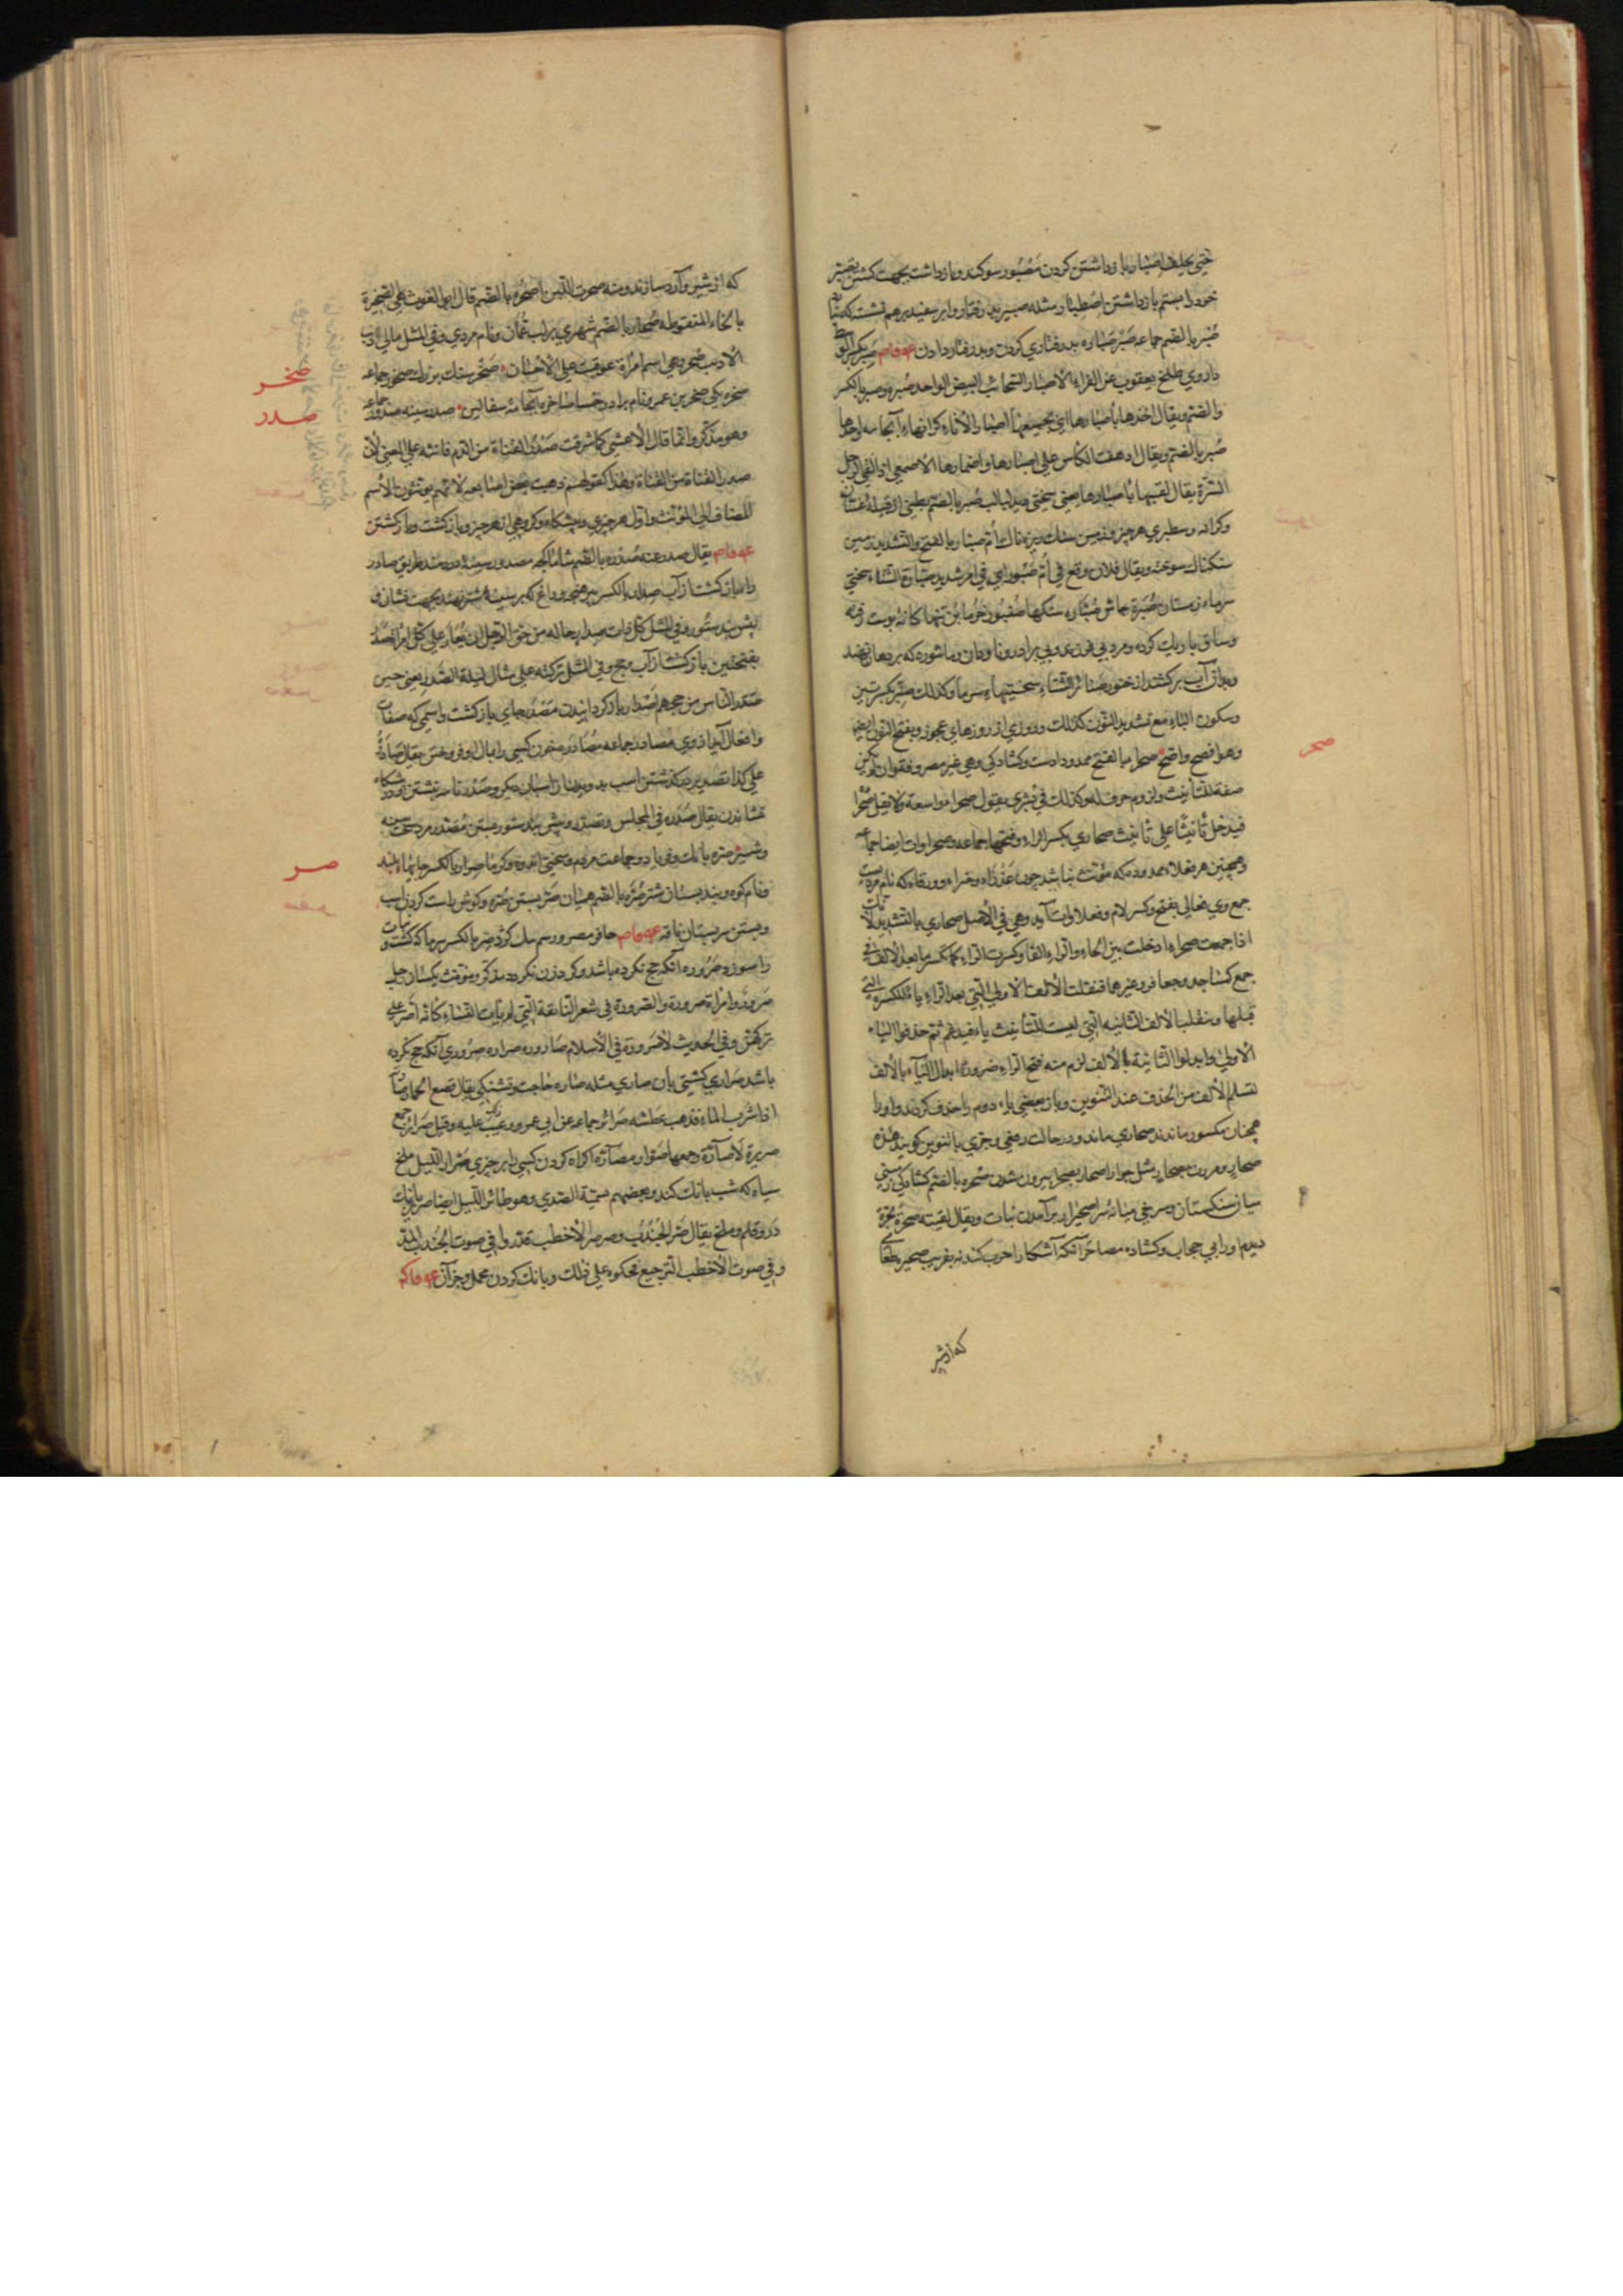 حتی یحلف اصبار بازداشتن کردن مصبور سوکند و بازداشت بجهت کشتن تصبر
خود را بستم بازداشتن اصطبار مثله صبیر بذرفتار و ابر سفید برهم نشست که
صبر بالضم جماعه صبر صباره بذرفتاری کردن و بذرفتار دادن صبر بکسر
داروی طلخ یعقوب عن الفراء الاصبار السحائب البیض الواحد صبر و صبر بالکسر
والضم ویقال اخذها باصبارها ای بجمیعها اصبار الاناء کرانهاء آنجامه واحدها
صبر بالضم ویقال ادهقت الکأس علی اصبارها واصمارها الاصمعی اذا لقی الرجل
الشدة یقال لقیها باصبارها یعنی سختی صبر بالضم بطنی از قبیله غسان
وکرانه وسطبری هر چیز و زمین سنك ریزه ناك ام صبار بالفتح والتشدید زمین
سنکناك سوخته ویقال فلان وقع فی ام صبور ای فی امر شدید صبارة الشتاء سختی
سرماء زمستان صبرة جاش صباره سنکها صنبور خرمابن تنها
وساق باریك کرده ومرد بی فرزند وبی برادر وناودان وماشوره که بر دهان نهند
وبدان آب برکشند از خنور صنابر الشتاء سختیهاء سرما وکذلك صنبر بکسرتین
وسکون الباء مع تشدید النون کذلك وروزی از روزهای عجوز وبفتح النون ایضا
وهو افصح واضح صحرا بالفتح ممدودا دست وکشادکی وهی غیر مصروفة وان لم یکن
صفة للتأنیث ولزوم حرف له وکذلك فی بشری یقول صحرا واسعة ولا تقل صحرا
فیدخل تأنیثا علی تأنیث صحاری بکسر الراء وفتحها جماعه وصحراوات ایضا جماعه
وهمچنین هر فعلاء ممدوده که مؤنث نباشد چون عذراء وخبراء وورقاء که نام مردیست
جمع وی فعالی بفتح وکسر لام وفعلاوات آید وهی فی الاصل صحاری بالتشدید لانك
اذا جمعت صحراء ادخلت بین الحاء والراء الفا وکسرت الراء کما تکسر ما بعد الالف فی
جمع کمساجد وجعافر وغیرهما فتقلب الالف الاولی التی بعد الراء یاء للکسرة التی
قبلها وتنقلب الالف الثانیه التی لیست للتأنیث یاء فیدغم ثم حذفوا الیاء
الاولی وابدلوا الثانیة بالالف لزم منه فتح الراء ضرورة ابدال الیاء بالالف
لتسلم الالف من الحذف عند التنوین وباز بعضی یاء دوم را حذف کردند واو را
همچنان مکسور ماندند صحاری ماند ودر حالت رفعی وجری بالتنوین کویند هذه
صحار ومررت بصحار مثل جوار اصحار بصحرا بیرون شدن صحره بالضم کشادکی زمینی
میان سنکستان وسرخی میانه سر اصحیرار برآمدن نبات ویقال لقیته صحرة بحرة
دیدم او را بی حجاب وکشاده مصاحر آنکه آشکارا حرب کند نه بفریب صحیره طعامی
که از شیر
صحر
که از شیر وآرد سازند ومنه صحرت اللبن اصحره بالضم قال ابو الغوث هی الصخیرة
بالخاء المنقوطه صحار بالضم شهری بر لب عمان ونام مردی وفی المثل مالی ذنب
الا ذنب صحر وهی اسم امرأة عوقبت علی الاحسان صخر سنك بزرك صخور جماعه
صخره یکی صخر بن عمرو نام برادر خنسا صاخره آنجامه سفالین صدر سینه صدور جماعه
وهو مذکر وانما قال الاعشی کما شرقت صدر القناة من الدم فانثه علی المعنی لان
صدر القناة من القناة وهذا کقولهم ذهبت بعض اصابعه لانهم یؤنثون الاسم
المضاف الی المؤنث واول هر چیزی وپیشکاه وکروهی از هر چیز وبازکشت وبازکشتن
یقال صدر عنه صدره بالضم شاماکچه مصدور سینه دردمند طریق صادر
راه بازکشت از آب صدار بالکسر پیرهنچه وداغ که بر سینه شتر نهند بجهت نشان و
پیش بند ستور وفی المثل کل ذات صدار خاله من حق الرجل ان یغار علی کل امرأة صدر
بفتحتین بازکشت از آب وحج وفی المثل ترکته علی مثال لیلة الصدر یعنی حین
صدر الناس من حجهم اصدار بازکردانیدن مصدر جای بازکشت واسمی که صفات
وافعال آید از وی مصادر جماعه مصادره خون کسی را بمال او فروختن یقال صادره
علی کذا تصدیر درکذشتن اسب بدویدن از اسبان دیکر وصدر نامه نبشتن ودر پیشکاه
نشاندن یقال صدره فی المجلس وتصدر وپیش بند ستور بستن مصدر مرد سخت سینه
وشیر صره بانك وفریاد وجماعت مردم وسختی اندوه وکرما صرار بالکسر جایهاء بلند
ونام کوه وبند بستان شتر صره بالضم همیان صر بستن صره وکوش راست کردن اسب
وبستن سر پستان ناقه حافر مصرور سم تنك کرد صر بالکسر سرما که کشت ونبات
را سوزد صروره آنکه حج نکرده باشد وکرد زن نکردد مذکر ومؤنث یکسان رجل
صرورة وامرأة صرورة والصرورة فی شعر النابغة التی لم یأت النساء کانه اصر علی
ترکهن وفی الحدیث لا صرورة فی الاسلام صاروره صراره صروری آنکه حج نکرده
باشد صراری کشتی بان صاری مثله صاره حاجت وتشنکی یقال قصع الحمار صارته
اذا شرب الماء فذهب عطشه صرائر جماعه عن ابی عمرو وعیب علیه وقیل صرائر جمع
صریرة لا صارة وجمعها صوار مصاره اکراه کردن کسی را بر چیزی صرار اللیل ملخ
سیاه که شب بانك کند وبعضهم یسمیة الصدی وهو طائر اللیل ایضا صریر بانك
در وقلم وملخ یقال صر الجندب وصرصر الاخطب قدروا فی صوت الجندب المد
وفی صوت الاخطب الترجیع فحکوه علی ذلك وبانك کردن محمل وجز آن
صخر
صدر
صر